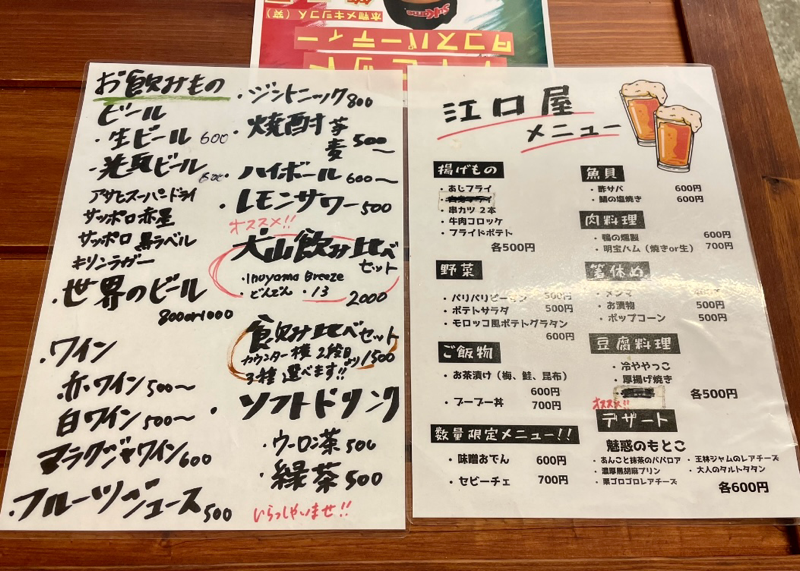 本物メキシコ人(笑)
タコスパーティー
お飲みもの
ビール
・生ビール 600
・光具ビール 600
アサヒスーパードライ
サッポロ赤星
サッポロ 黒ラベル
キリンラガー
・世界のビール
800or1000
・ワイン
・赤ワイン 500〜
白ワイン 500〜
マラグジャワイン600
・フルーツジュース 500
・ジントニック 800
・焼酎 芋
麦 500〜
・ハイボール 600〜
・レモンサワー 500
オススメ!!
犬山飲み比べ
セット
・Inuyama Breeze
・どんでん ・13
2000
飲み比べセット
カウンター横 2段目
より1500
3種 選べます!!
・ソフトドリンク
・ウーロン茶 500
・緑茶 500
いらっしゃいませ!!
江口屋
メニュー
揚げもの
・あじフライ
・串カツ 2本
・牛肉コロッケ
・フライドポテト
各500円
野菜
・パリパリピーマン 500円
・ポテトサラダ 500円
・モロッコ風ポテトグラタン
600円
ご飯物
・お茶漬け(梅、鮭、昆布)
600円
・ブーブー丼 700円
数量限定メニュー!!
・味噌おでん 600円
・セビーチェ 700円
魚貝
・酢サバ 600円
・鯖の塩焼き 600円
肉料理
・鴨の燻製 600円
・明宝ハム(焼きor生) 700円
箸休め
・メンマ
・お漬物 500円
・ポップコーン 500円
豆腐料理
・冷ややっこ
・厚揚げ焼き
各500円
オススメ!!
デザート
魅惑のもとこ
・あんこと抹茶のババロア
・濃厚黒胡麻プリン
・栗ゴロゴロレアチーズ
・王林ジャムのレアチーズ
・大人のタルトタタン
各600円